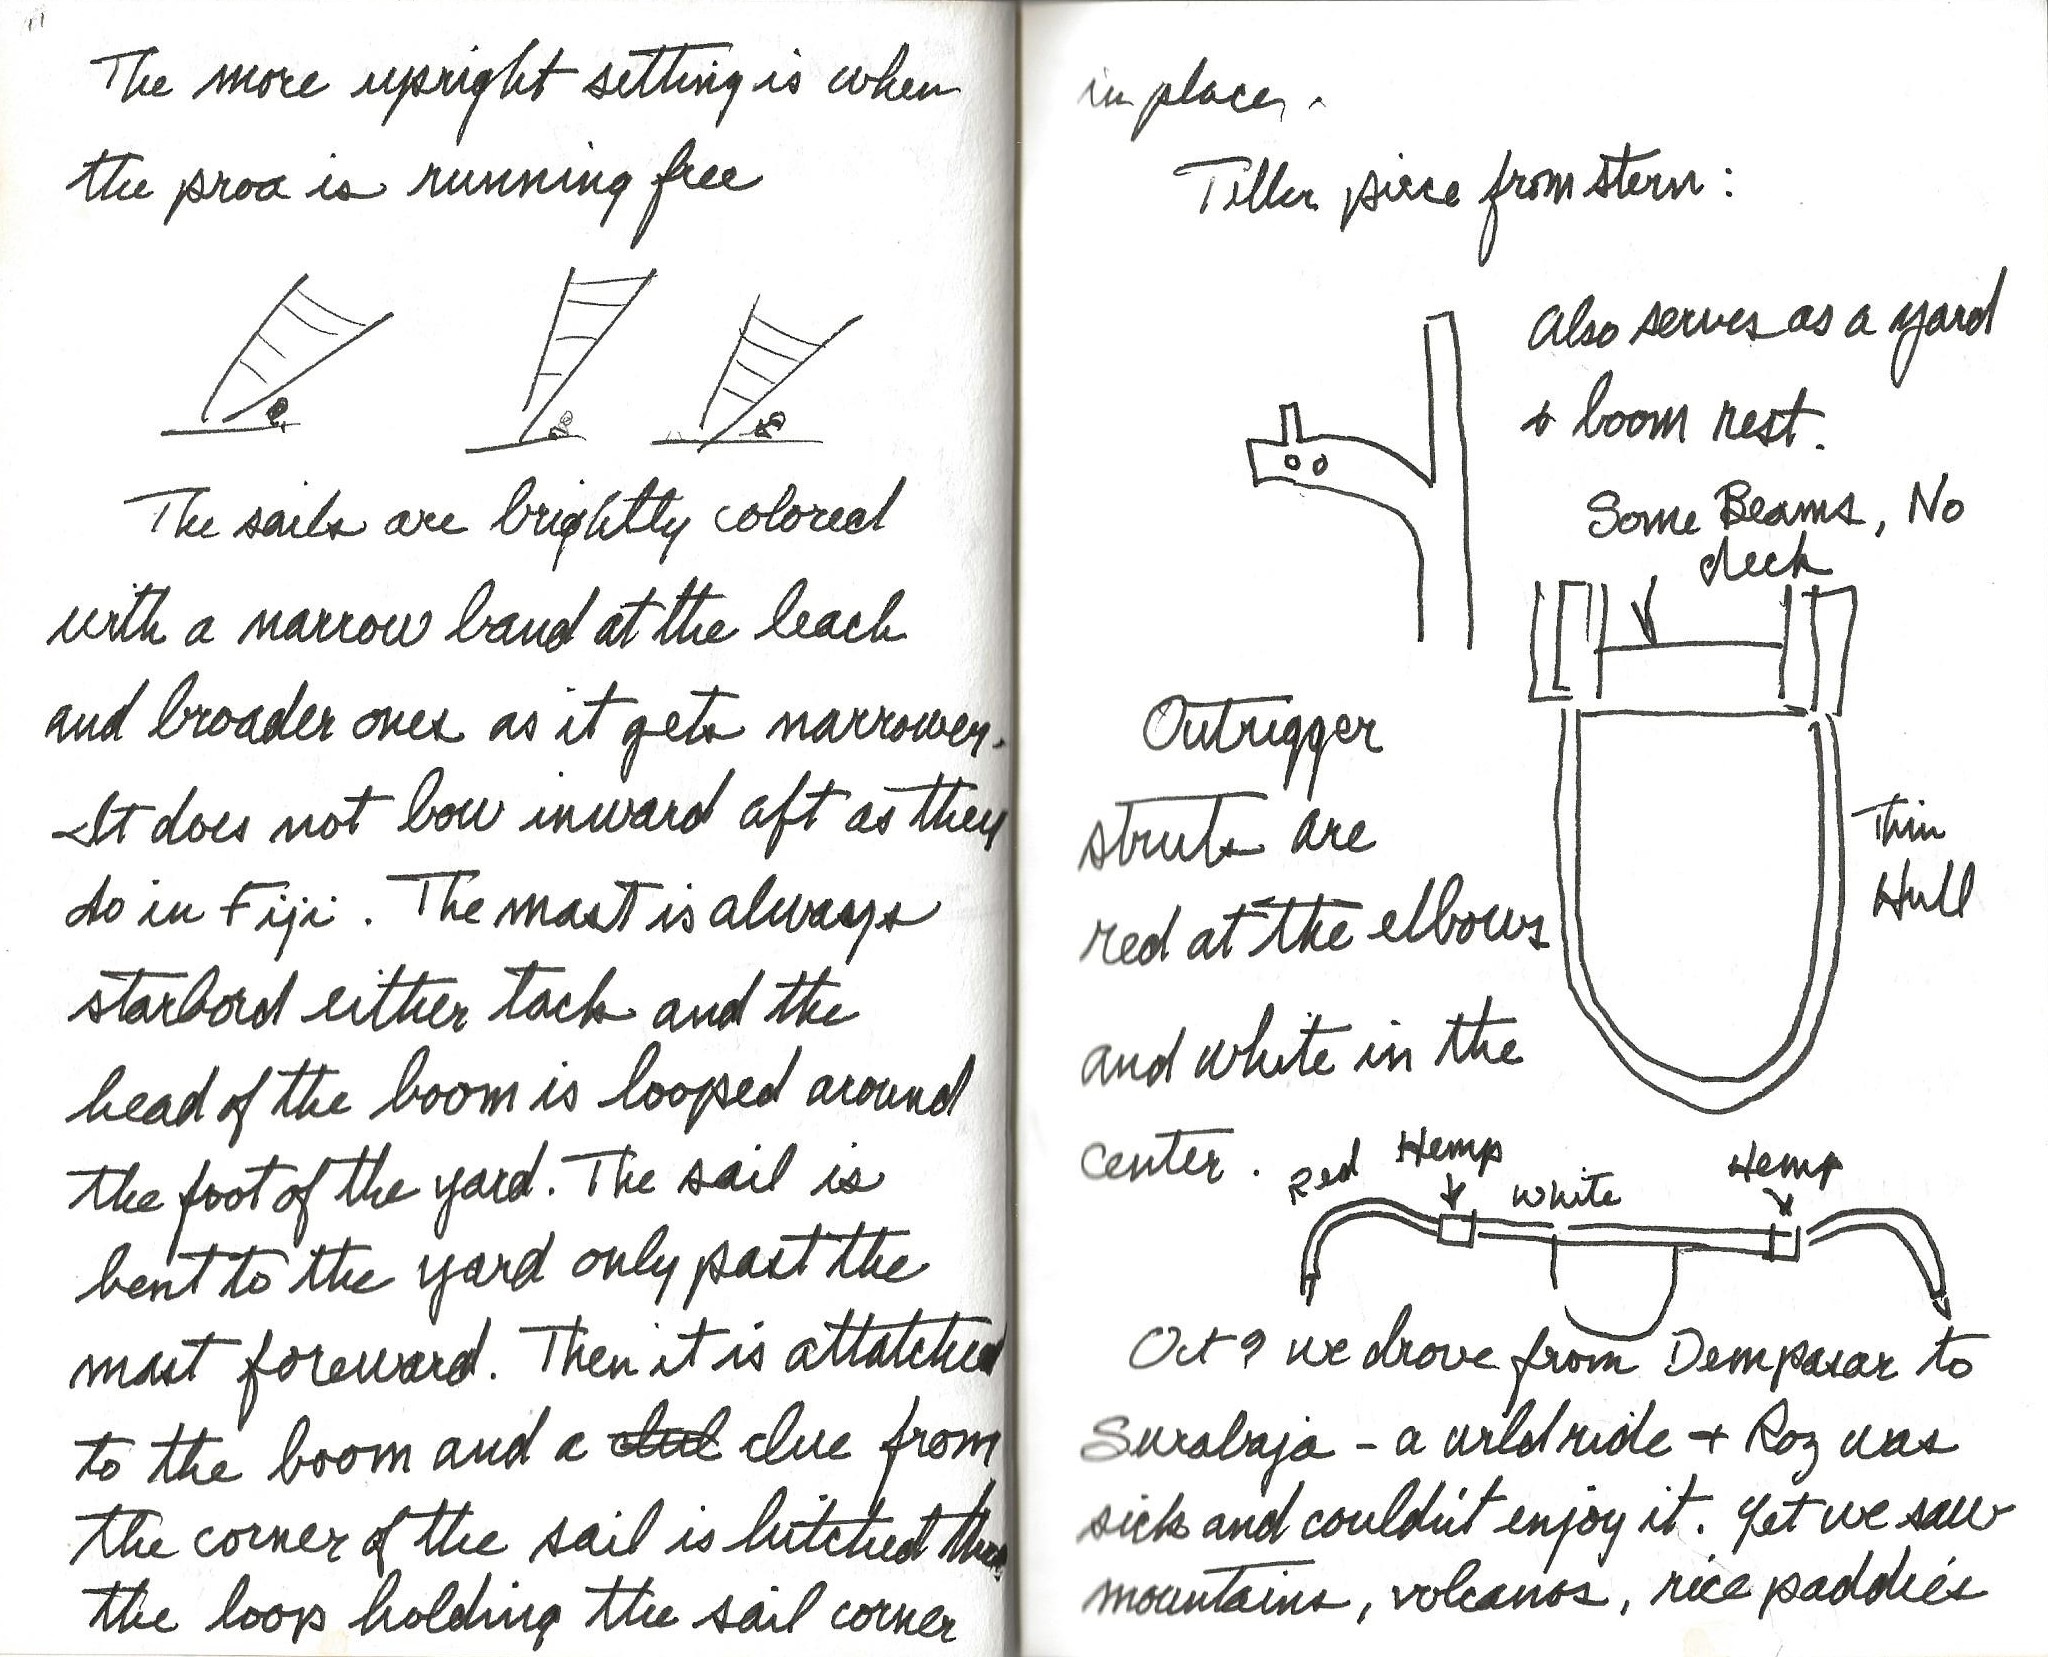 The more upright setting is when
the proa is running free
The sails are brightly colored
with a narrow band at the leach
and broader ones as it gets narrower.
It does not bow inward aft as they
do in Fiji. The mast is always
starbord either tack and the
head of the boom is looped around
the foot of the yard. The sail is
bent to the yard only past the
mast foreward. Then it is attatched
to the boom and a clue from
the corner of the sail is hitched thru
the loop holding the sail corner
in place.
Tiller piece from stern:
Also serves as a yard
+ boom rest.
Some Beams, No
deck
Outrigger
struts are
red at the elbows
and white in the
center.
Thin
Hull
Red Hemp White Hemp
Oct 9 we drove from Dempasar to
Surabaja - a wild ride + Roz was
sick and couldn't enjoy it. Yet we saw
mountains, volcanos, rice paddies